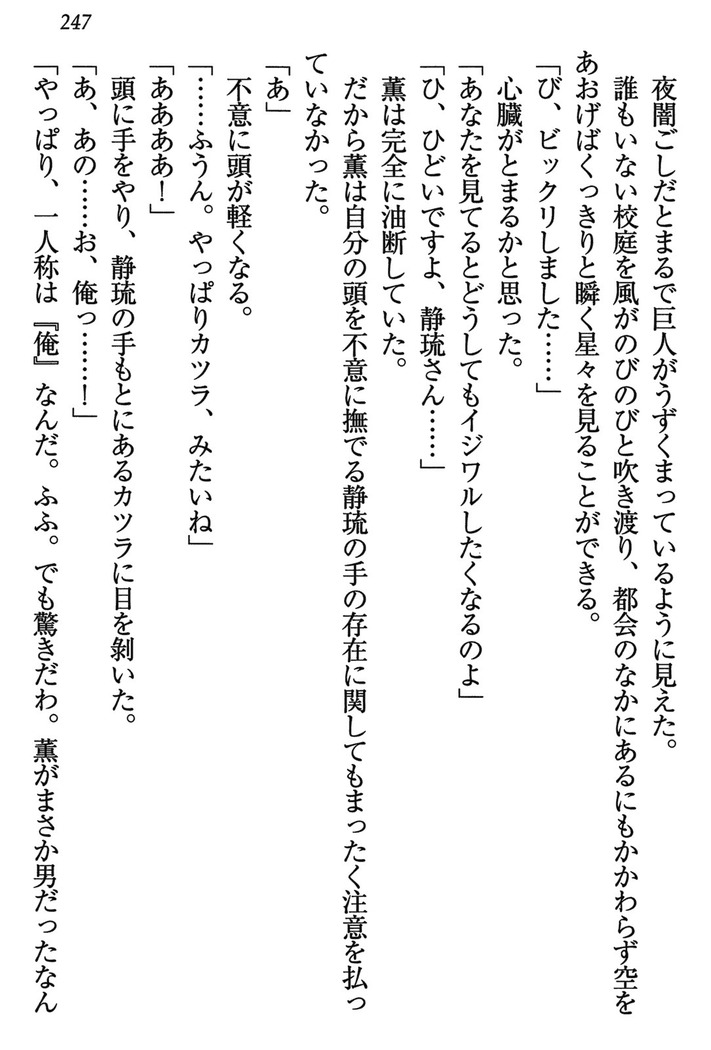 247
夜闇ごしだとまるで巨人がうずくまっているように見えた。
誰もいない校庭を風がのびのびと吹き渡り、都会のなかにあるにもかかわらず空を
あおげばくっきりと瞬く星々を見ることができる。
「び、ビックリしました……」
心臓がとまるかと思った。
「あなたを見てるとどうしてもイジワルしたくなるのよ」
「ひ、ひどいですよ、静琉さん……」
薫は完全に油断していた。
だから薫は自分の頭を不意に撫でる静琉の手の存在に関してもまったく注意を払っ
ていなかった。
「あ」
不意に頭が軽くなる。
「……ふうん。やっぱりカツラ、みたいね」
「ああああ！」
頭に手をやり、静琉の手もとにあるカツラに目を剝いた。
「あ、あの……お、俺っ……！」
「やっぱり、一人称は『俺』なんだ。ふふ。でも驚きだわ。薫がまさか男だったなん